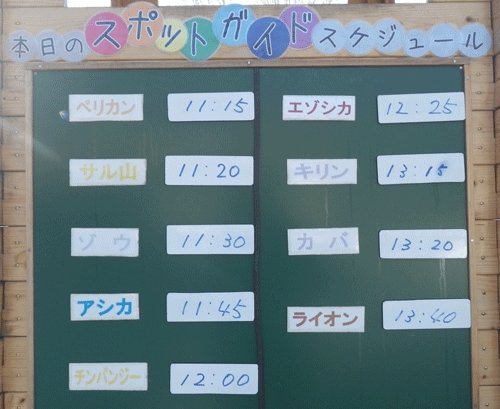 本日のスポットガイドスケジュール
ペリカン 11:15
サル山 11:20
ゾウ 11:30
アシカ 11:45
チンパンジー 12:00
エゾシカ 12:25
キリン 13:15
カバ 13:20
ライオン 13:40